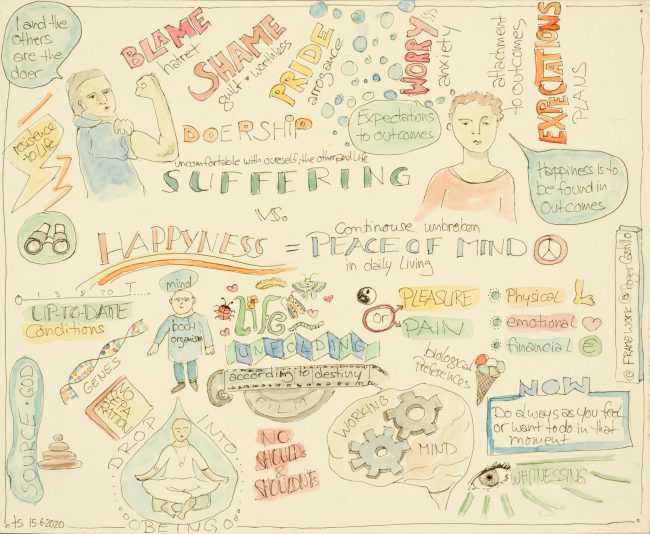 I and the
others
are the
doer
BLAME
hatret
SHAME
guilt • worthless
PRIDE
arrogance
WORRY is
anxiety
attachment
to outcomes
EXPECTATIONS
PLANS
resistence
to Life
DOERSHIP
Expectations
to outcomes
Happiness is to
be found in
Outcomes
uncomfortable with ourself, the other and life
SUFFERING
VS.
HAPPYNESS = PEACE OF MIND
Continouse unbroken
in daily living
1 3 9 20 T
UP-TO-DATE
Conditions
GENES
mind
body
organism
LIFE
UNFOLDING
according to destiny
FILM
or
PLEASURE
PAIN
Physical
emotional
financial €
biological
Preferences
@ FRAMEWORK @Roger Castillo
SOURCE • GOD
DROP INTO
BEING
NO
SHOULDS
&
SHOULDN'TS
WORKING
MIND
NOW
Do always as you feel
or want to do in that
moment
WHITNESSING
15•6•2020